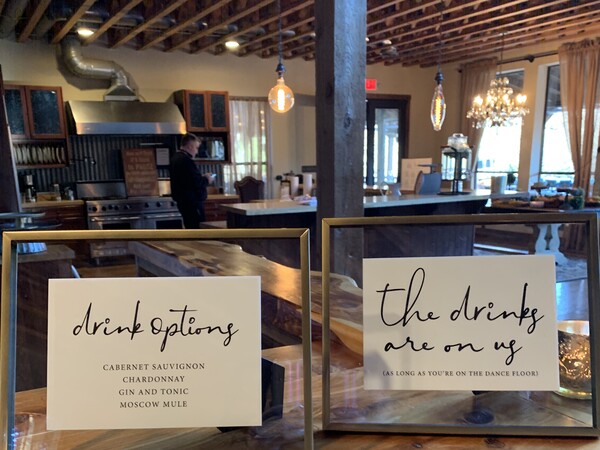 drink options
CABERNET SAUVIGNON
CHARDONNAY
GIN AND TONIC
MOSCOW MULE
the drinks
are on us
(AS LONG AS YOU'RE ON THE DANCE FLOOR)